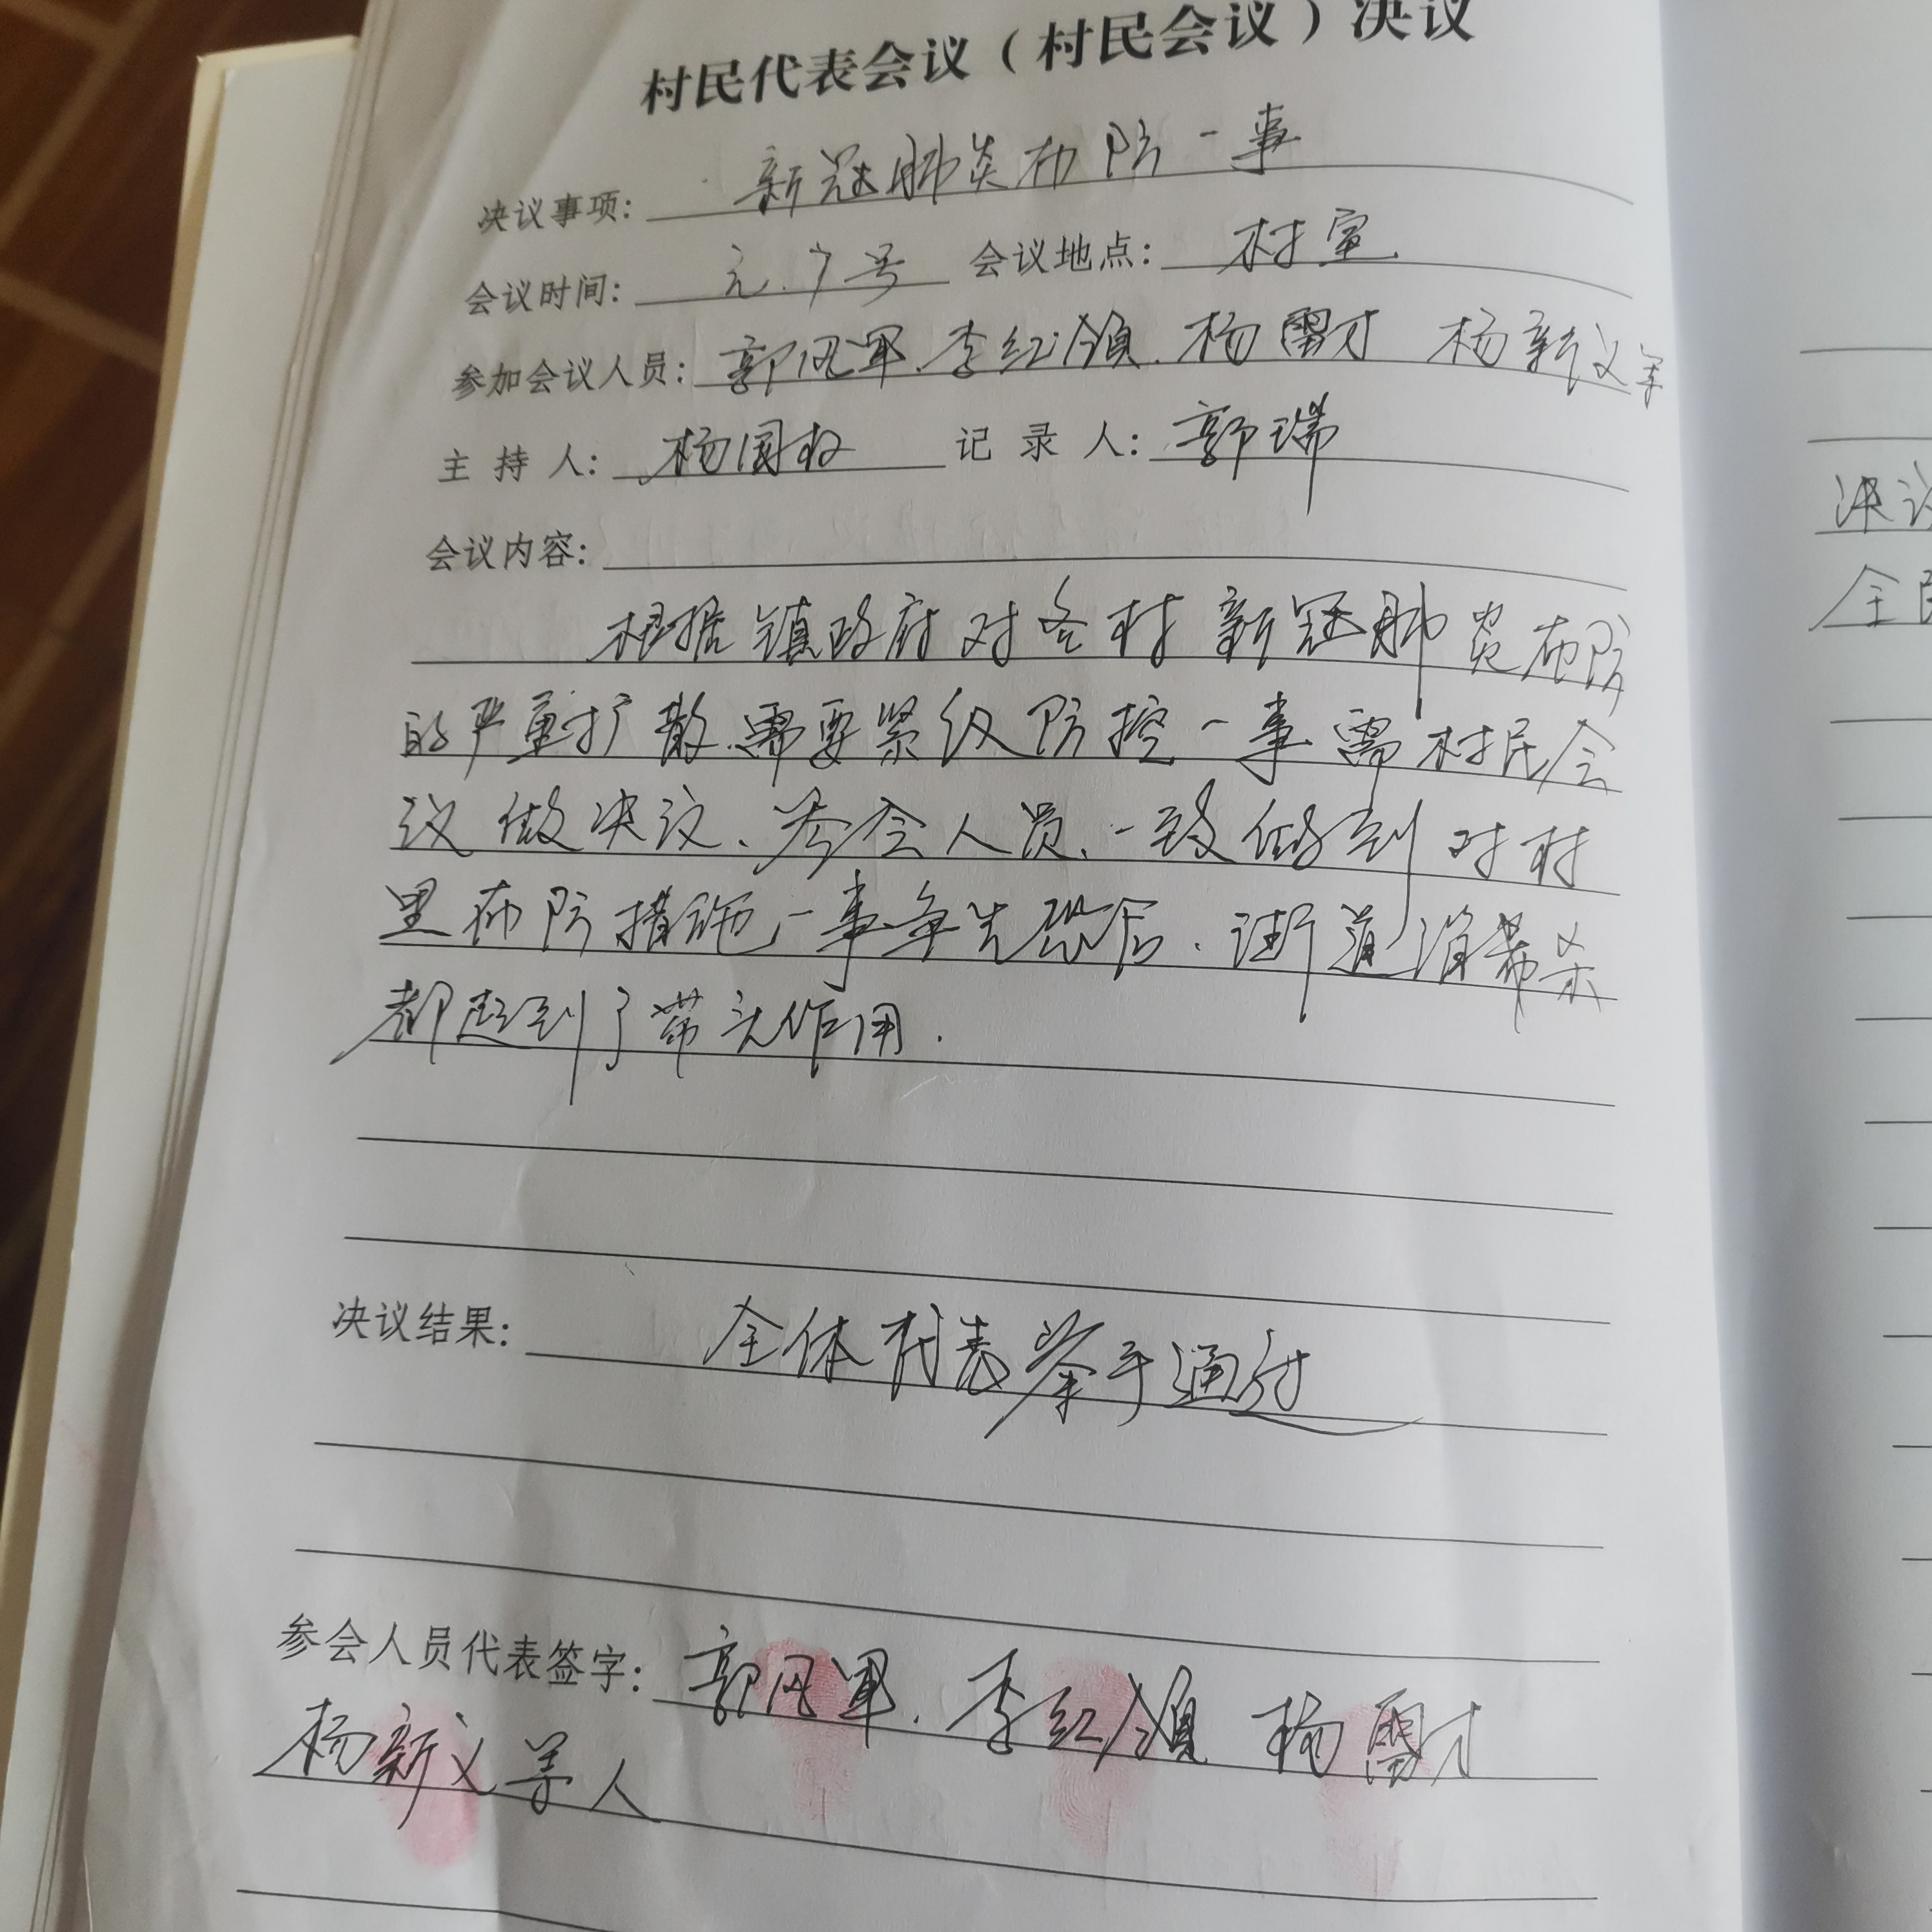 村民代表会议（村民会议）决议
决议事项: 新冠肺炎布防一事
会议时间: 元.7号 会议地点: 村室
参加会议人员: 郭风军.李红领.杨雷才 杨新义等
主持人: 杨国权 记录人: 郭瑞
会议内容:
根据镇政府对各村新冠肺炎布防
的严重扩散.需要紧级防控一事需村民会
议做决议、参会人员、一致做到对村
里布防措施一事争先恐后.街道消毒杀
都起到了带头作用.
决议结果: 全体村表举手通过
参会人员代表签字: 郭风军.李红领 杨雷才
杨新义等人
决议
全